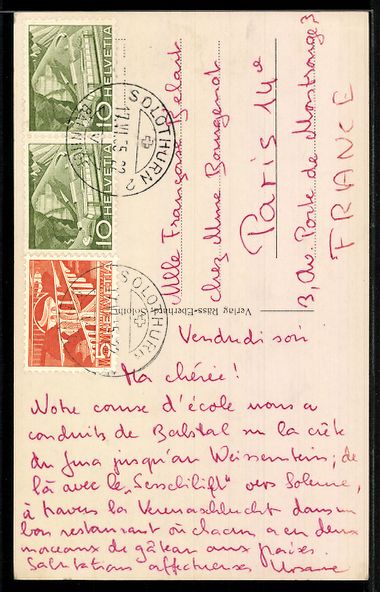 HELVETIA
10
HELVETIA
10
HELVETIA
5
SOLOTHURN 2
SOLOTHURN
Mlle Françoise
chez Mme
Paris 14e
3, Av. Porte de Montrouge 3
FRANCE
Verlag Räss-Eberhard, Soloth
Vendredi soir
Ma chérie!
Notre course d'école nous a
conduits de Balstal sur la crête
du Jura jusqu'au Weissenstein; de
là avec le „Sesselilift" vers Soleure,
à travers la Verenaschlucht dans un
bon restaurant où chacun a eu deux
morceaux de gâteau aux fraises.
Salutations affectueuses